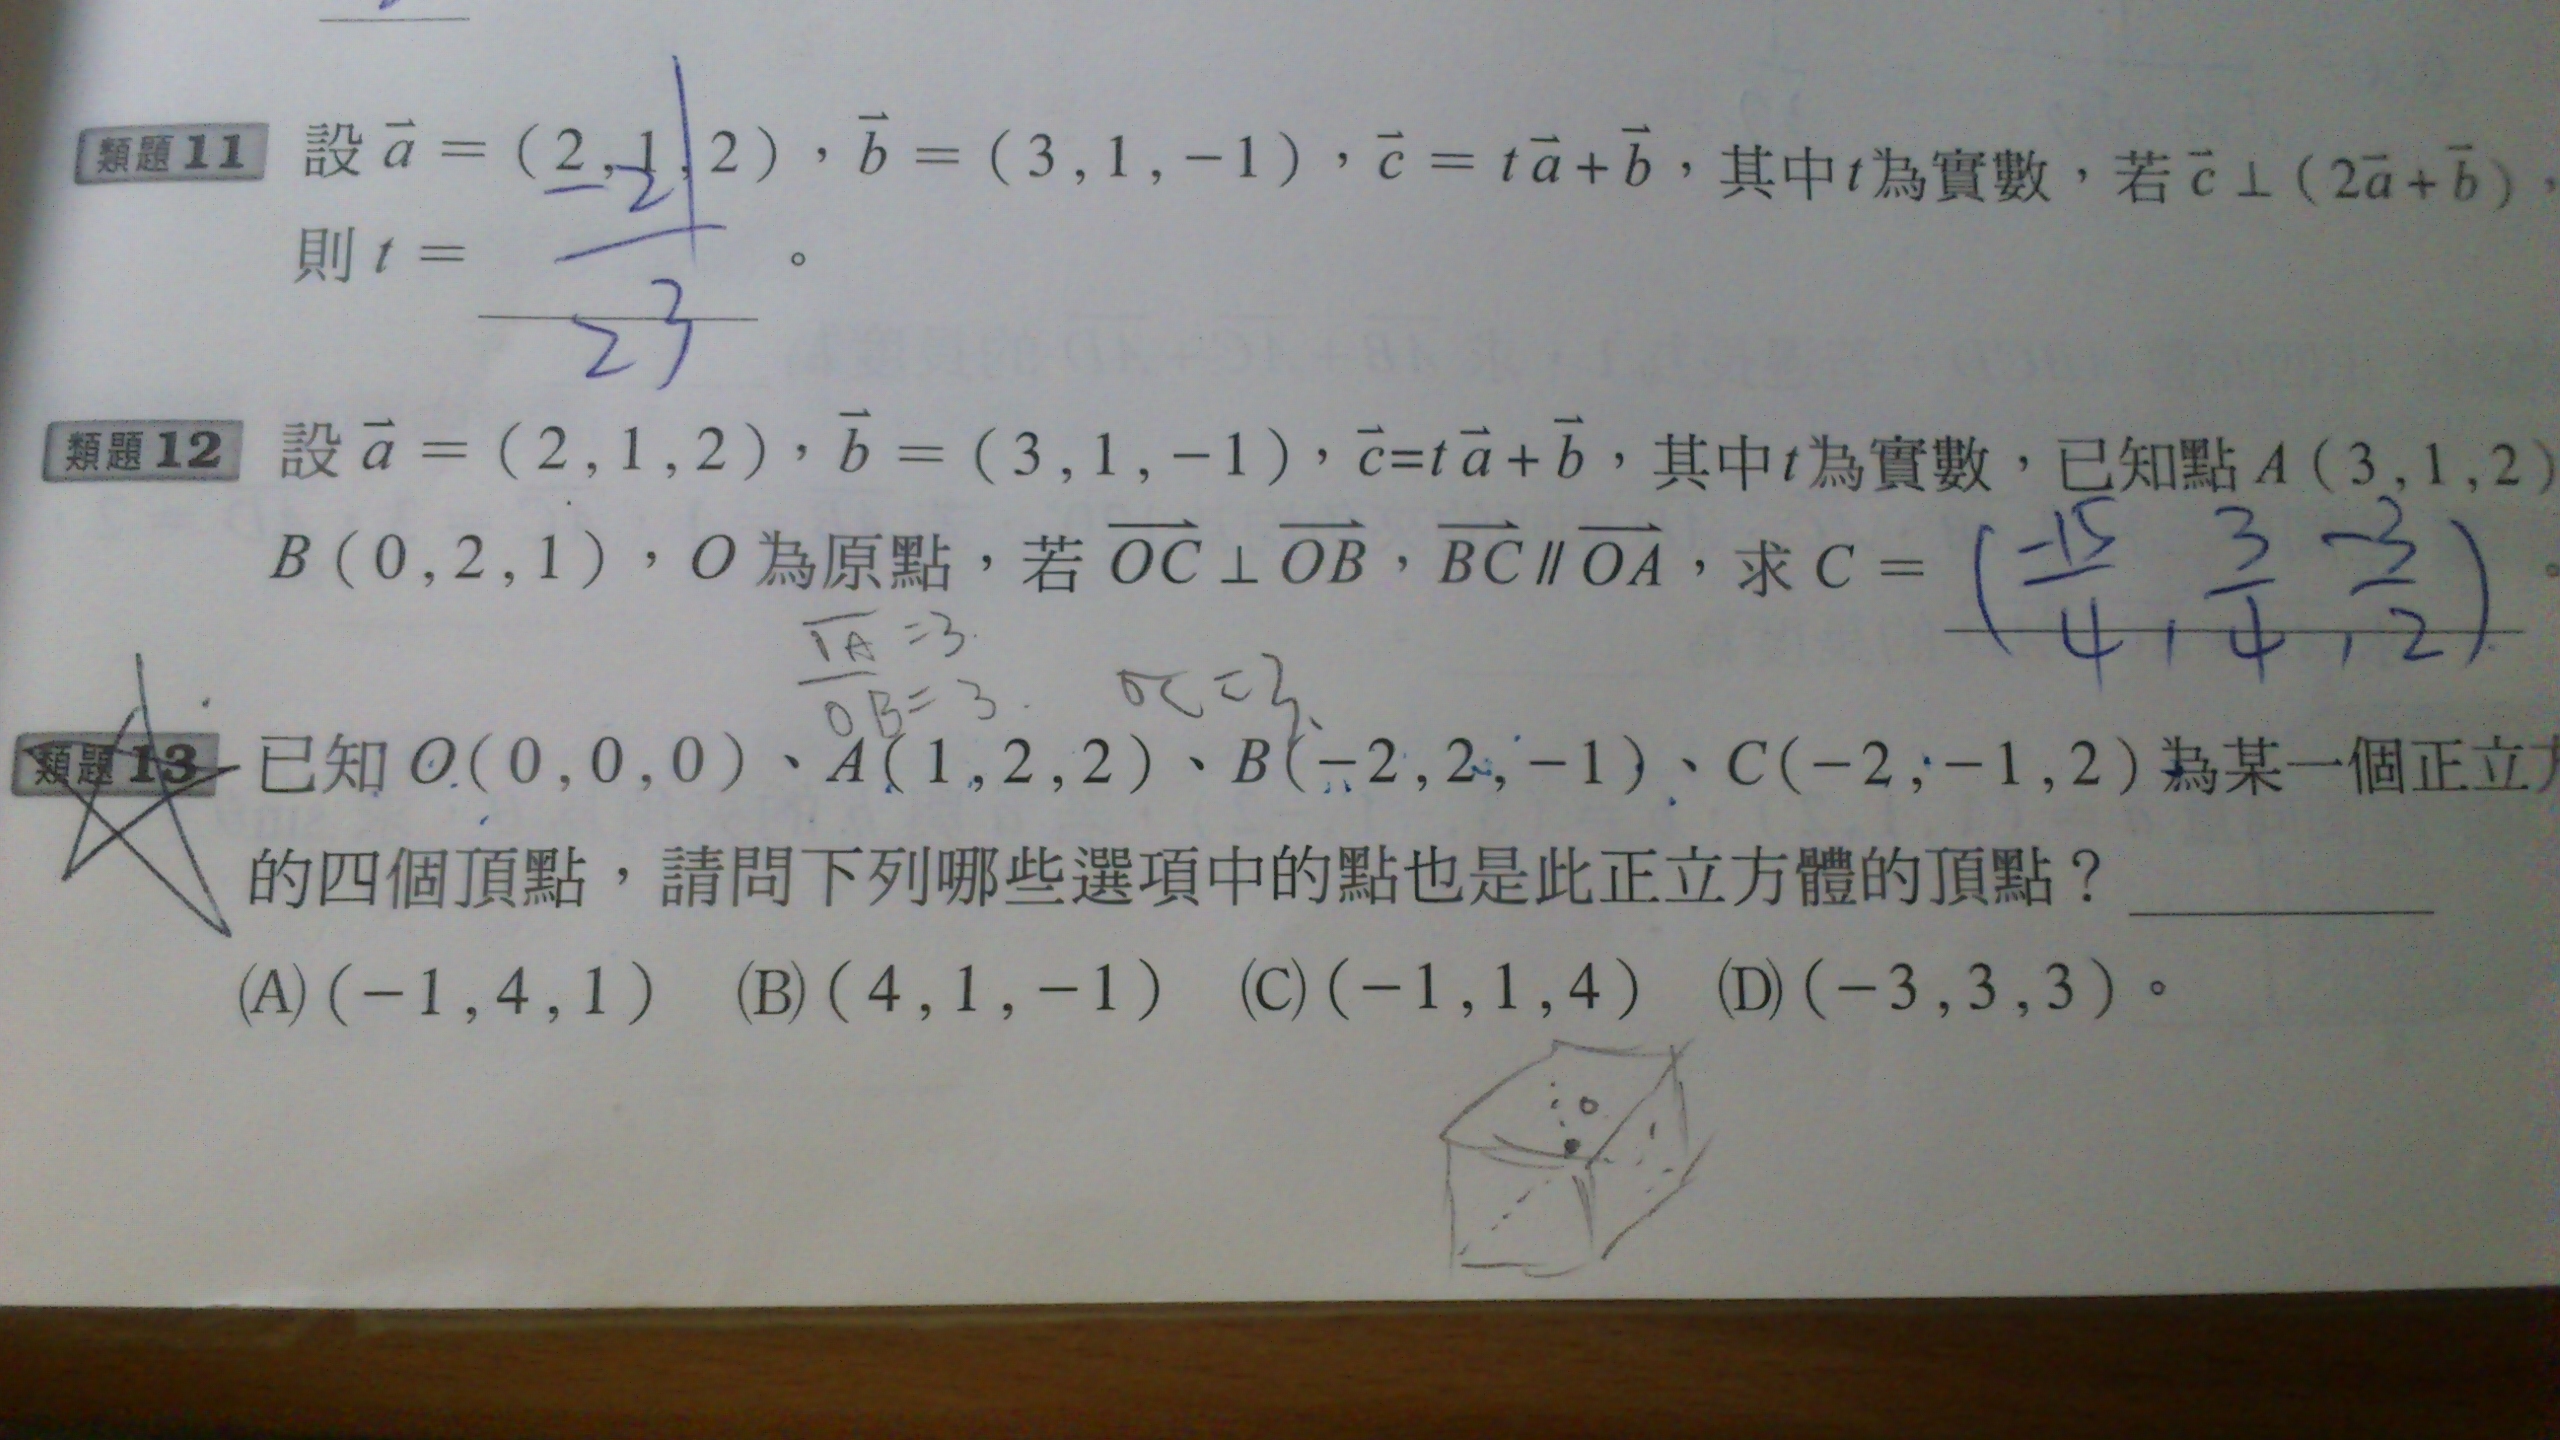 類題11 設 a⃗ = (2,1,2),b⃗ = (3,1,-1),c⃗ = ta⃗+b⃗,其中t為實數,若c⃗⊥(2a⃗+b⃗),
則 t = 。
-21
23
類題12 設 a⃗ = (2,1,2),b⃗ = (3,1,-1),c⃗=ta⃗+b⃗,其中t為實數,已知點A(3,1,2)
B(0,2,1),O為原點,若OC⊥OB,BC∥OA,求C= (-15/4, 3/4, -3/2)。
=3
OB=3. OC=3
類題13 已知O(0,0,0)、A(1,2,2)、B(-2,2,-1)、C(-2,-1,2)為某一個正立方
的四個頂點,請問下列哪些選項中的點也是此正立方體的頂點?
(A)(-1,4,1) (B)(4,1,-1) (C)(-1,1,4) (D)(-3,3,3)。